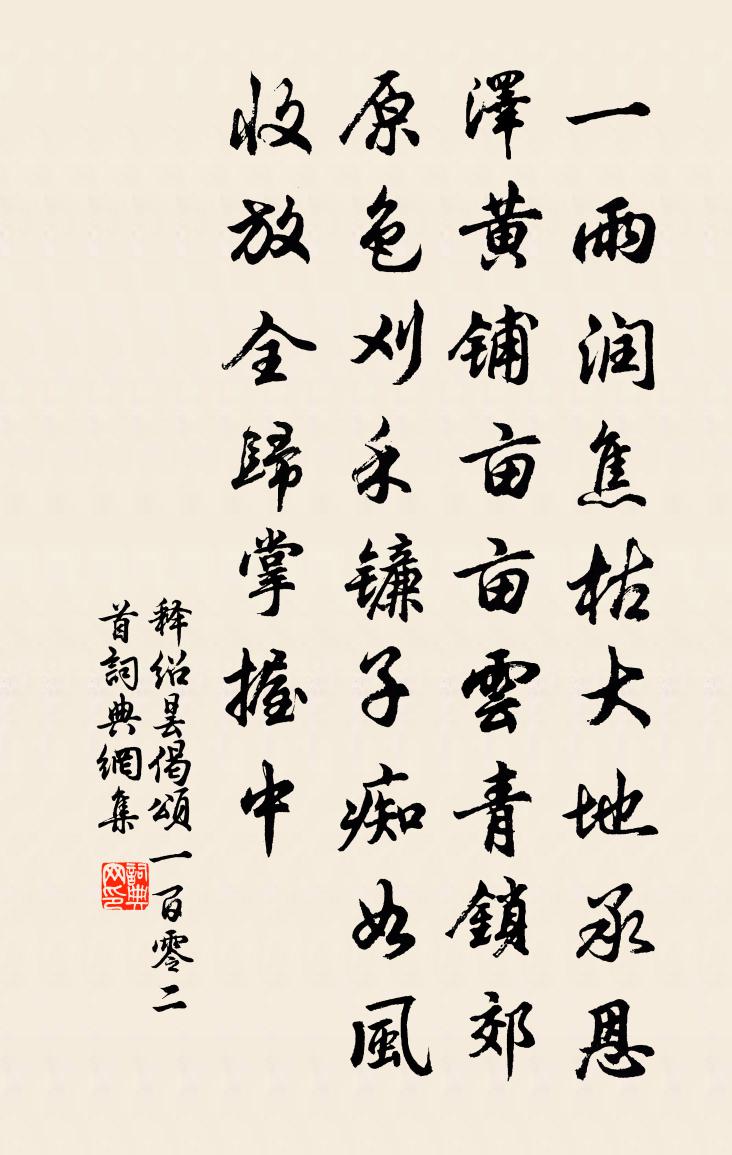 一雨润焦枯大地承恩
澤黄铺亩亩雲青鎖郊
原色刈禾镰子痴如風
收放全歸掌握中
释绍昙偈頌一百零二
首詞典網集
詞典网印